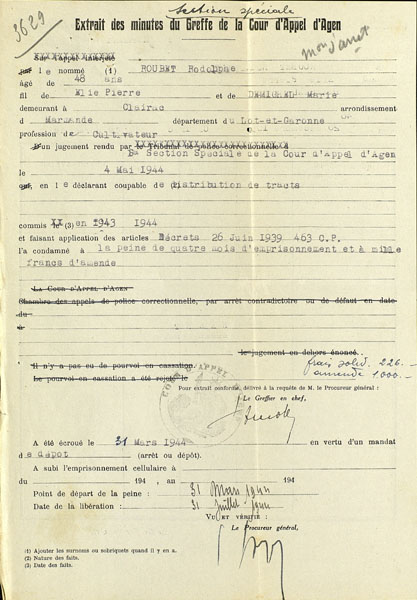 3629
section spéciale
Extrait des minutes du Greffe de la Cour d'Appel d'Agen
le nommé (1) ROUBET Rodolphe
âgé de 48 ans
fil de Elie Pierre et de DEMICHEL Marie
demeurant à Clairac arrondissement
d Marmande département du Lot-et-Garonne
profession de Cultivateur
D'un jugement rendu par le Tribunal de police correctionnelle d
la Section Spéciale de la Cour d'Appel d'Agen
4 Mai 1944
en le déclarant coupable de distribution de tracts
commis (3) en 1943 1944
et faisant application des articles Décrets 26 Juin 1939 463 C.P.
l'a condamné à la peine de quatre mois d'emprisonnement et à mille
francs d'amende
LA COUR D'APPEL D'AGEN
Chambre des appels de police correctionnelle, par arrêt contradictoire ou de défaut en date
du
à
le jugement en dehors énoncé.
frais solid. 226.-
Il n'y a pas eu de pourvoi en cassation.
amende 1000.-
Le pourvoi en cassation a été rejeté le
Pour extrait conforme, délivré à la requête de M. le Procureur général :
COUR D'APPEL
Le Greffier en chef,
A été écroué le 31 Mars 1944 en vertu d'un mandat
de dépôt (arrêt ou dépôt).
A subi l'emprisonnement cellulaire à
du 194 , au 194
Point de départ de la peine : 31 Mars 1944
Date de la libération : 31 Juillet 1944
VU ET VÉRIFIÉ :
Le Procureur général,
(1) Ajouter les surnoms ou sobriquets quand il y en a.
(2) Nature des faits.
(3) Date des faits.